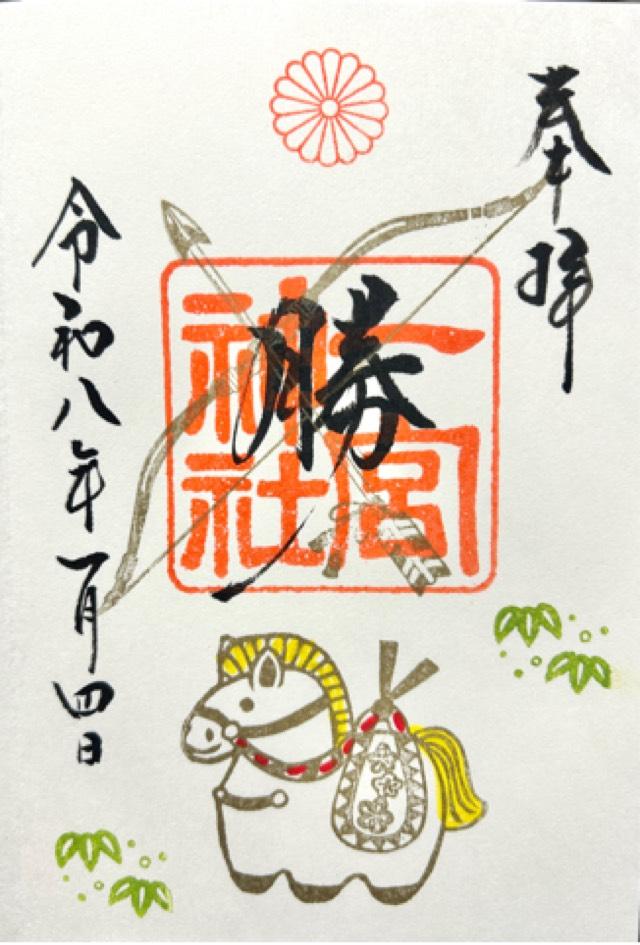 奉拝
勝
一宮
神社
令和八年一月四日